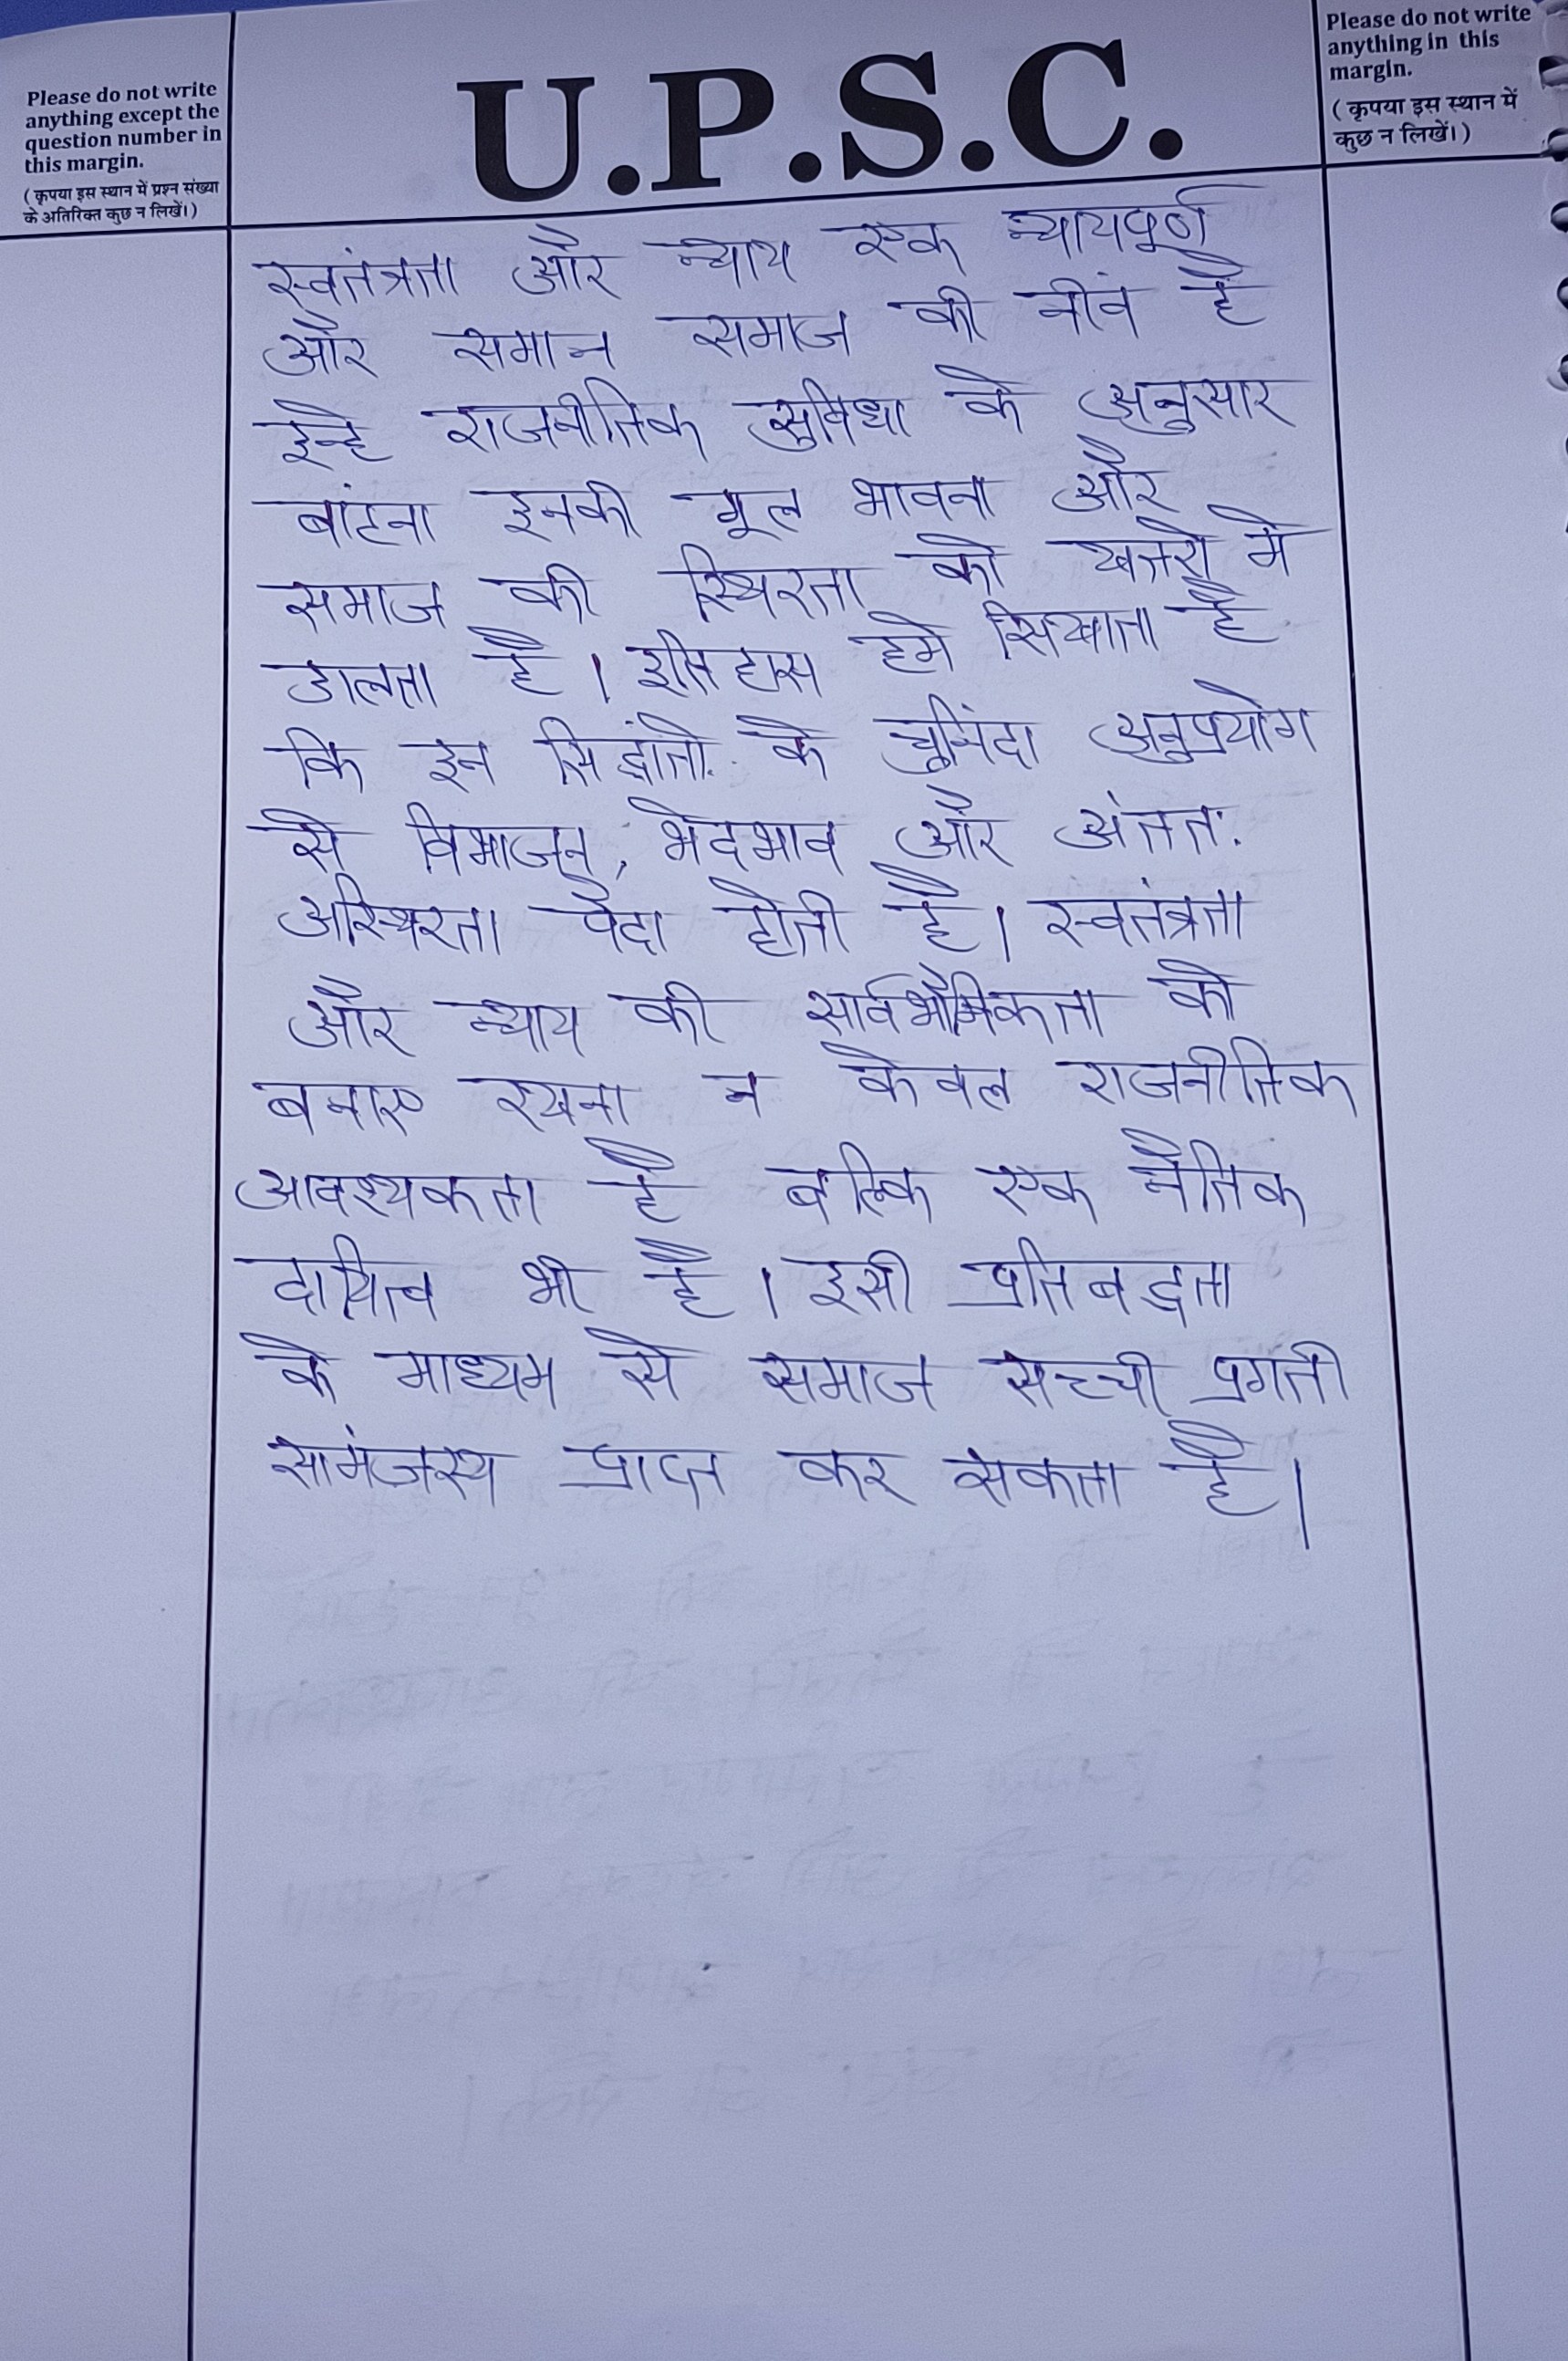 Please do not write
anything except the
question number in
this margin.
( कृपया इस स्थान में प्रश्न संख्या
के अतिरिक्त कुछ न लिखें।)
U.P.S.C.
Please do not write
anything in this
margin.
( कृपया इस स्थान में
कुछ न लिखें।)
स्वतंत्रता और न्याय एक न्यायपूर्ण
और समान समाज की नींव है
इन्हे राजनीतिक सुविधा के अनुसार
बांटना इनकी मूल भावना और
समाज की स्थिरता को खतरो मे
डालता है। इतिहास हमे सिखाता है
कि इन सिद्धांतो के चुनिंदा अनुप्रयोग
से विभाजन, भेदभाव और अंततः
अस्थिरता पैदा होती है। स्वतंत्रता
और न्याय की सार्वभौमिकता को
बनाए रखना न केवल राजनीतिक
आवश्यकता है बल्कि एक नैतिक
दायित्व भी है। इसी प्रतिबद्धता
के माध्यम से समाज सच्ची प्रगती
सामंजस्य प्राप्त कर सकता है।